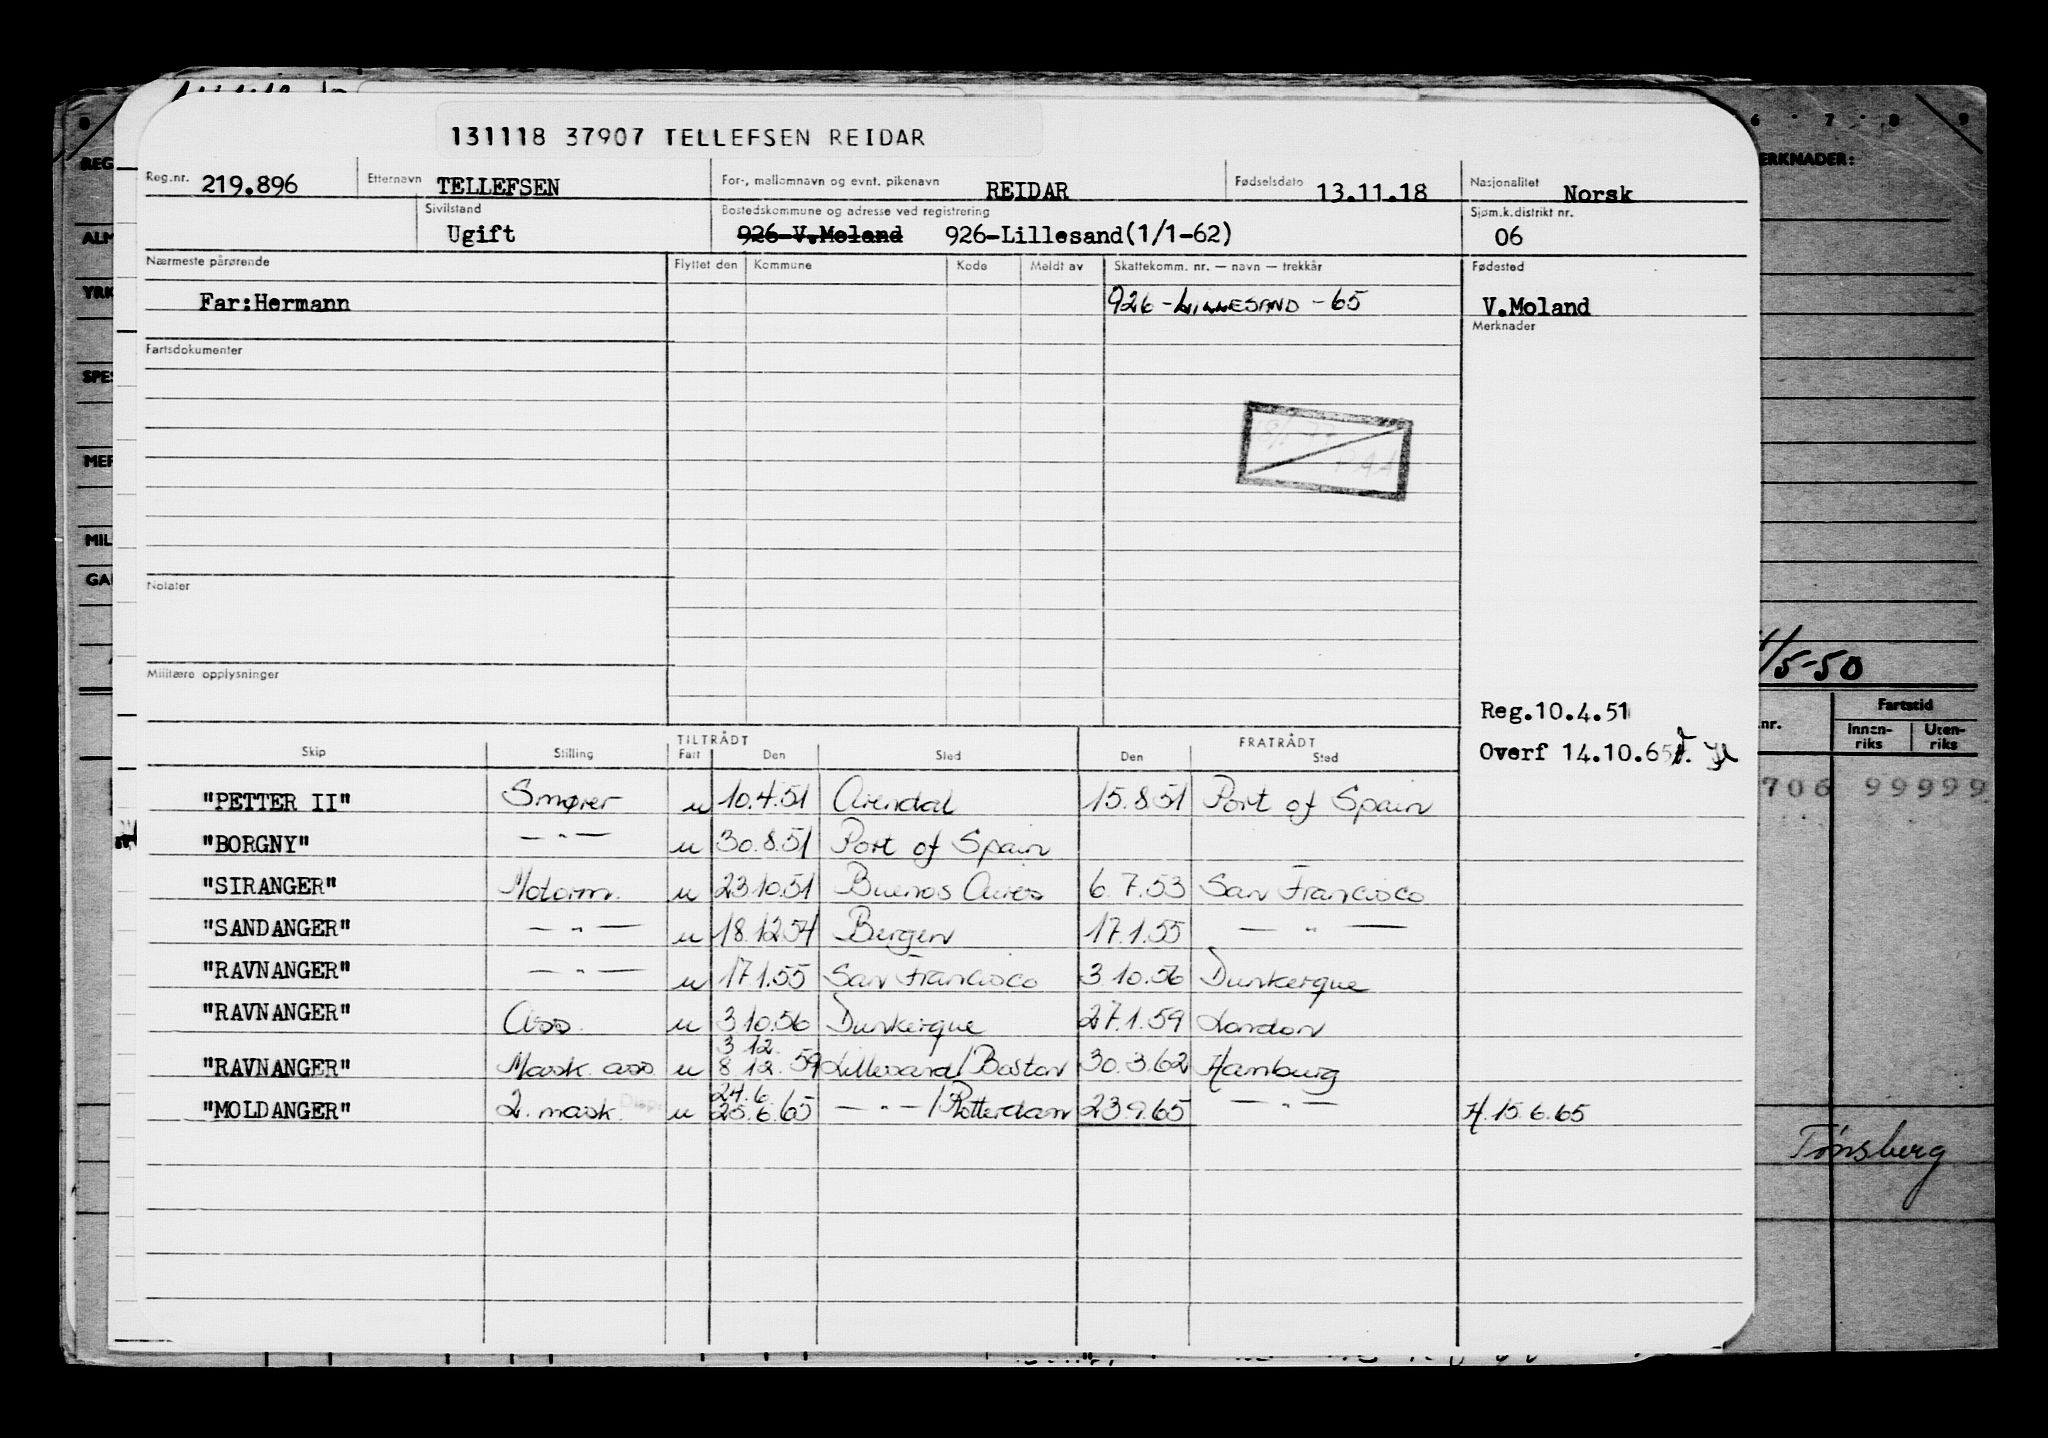 131118 37907 TELLEFSEN REIDAR
Reg.nr. 219.896 Etternavn TELLEFSEN For-, mellomnavn og evnt. pikenavn REIDAR Fødselsdato 13.11.18 Nasjonalitet Norsk
Sivilstand Ugift Bostedskommune og adresse ved registrering 926-V.Moland 926-Lillesand(1/1-62) Sjøm.k.distrikt nr. 06
Nærmeste pårørende Flyttet den Kommune Kode Meldt av Skattekomm. nr. — navn — trekkår Fødested
Far:Hermann 926-LILLESAND-65 V.Moland
Merknader
Fartsdokumenter
Notater
Militære opplysninger
Reg.10.4.51
Overf 14.10.65
TILTRÅDT FRATRÅDT
Skip Stilling Fart Den Sted Den Sted
"PETTER II" Smører u 10.4.51 Arendal 15.8.51 Port of Spain
"BORGNY" —"— u 30.8.51 Port of Spain
"SIRANGER" Motorm. u 23.10.51 Buenos Aires 6.7.53 San Francisco
"SANDANGER" —"— u 18.12.54 Bergen 17.1.55 —"—
"RAVNANGER" —"— u 17.1.55 San Francisco 3.10.56 Dunkerque
"RAVNANGER" Ass. u 3.10.56 Dunkerque 27.1.59 London
3.12.
"RAVNANGER" Mask. ass. u 8.12.59 Lillesand/Boston 30.3.62 Hamburg
24.6.
"MOLDANGER" 2. mask. u 25.6.65 —"—/Rotterdam 23.9.65 —"— H.15.6.65
REG
ALM
YRK
SPES
MER
MIL
GA
6 7 8 9
ERKNADER:
/5-50
nr. Fartstid
Innen-riks Uten-riks
706 99999
Tønsberg